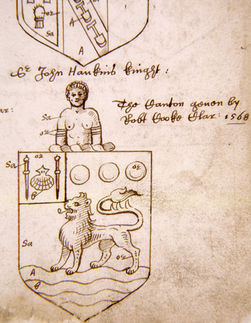 Sa
A
Sr John Haukins knight :
The Canton geuen by
Robt Cooke Clar : 1568
Sa
or
Sa
or
or
Sa
or
A
B